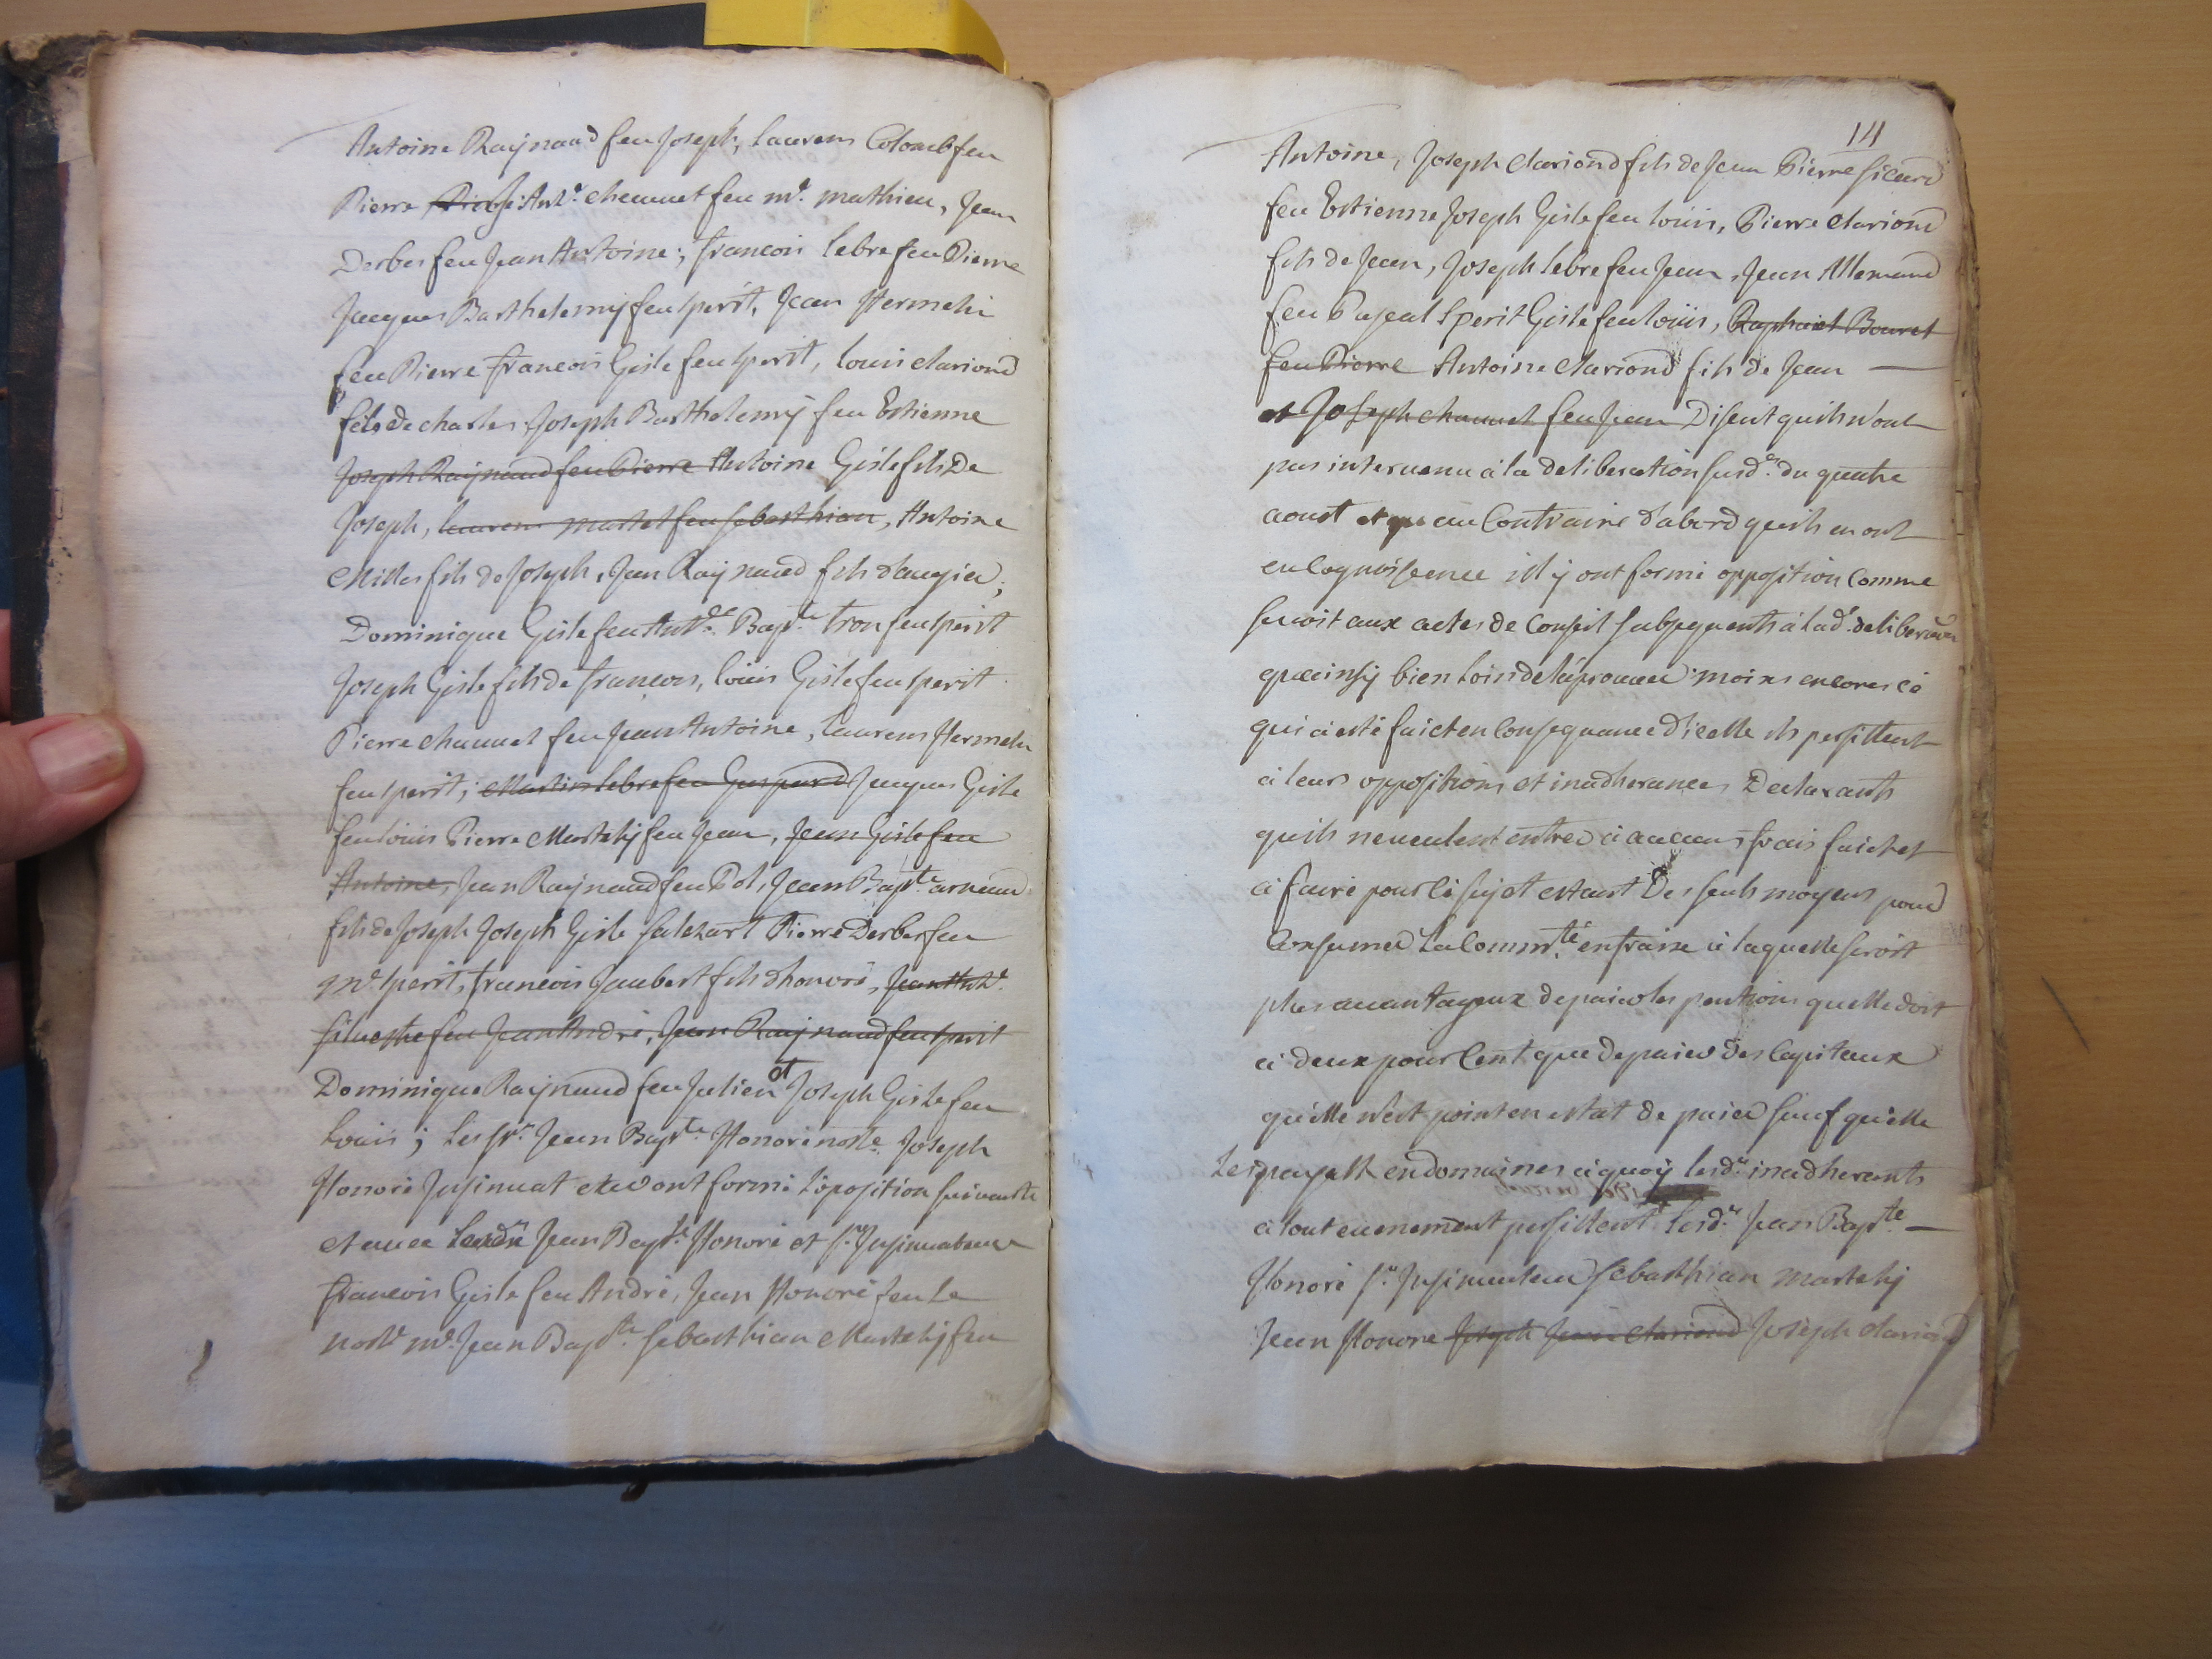 Antoine Raynaud feu Joseph, laurens Colomb feu
Pierre, Ant.e chauuet feu m.e mathieu, Jean
Derbes feu Jean Antoine; francois lebre feu Pierre
Jacques Barthelemy feu sperit, Jean Hermelin
feu Pierre francois Gisle feu sperit, louis clariond
fils de charles, Joseph Barthelemy feu Estienne
Joseph Raynaud feu Pierre Antoine Gisle fils De
Joseph, laurens martel feu sebasthian, Antoine
Milles fils de Joseph, Jean Raynaud fils daugier,
Dominique Gisle feu Ant.e Bap.te tron feu sperit
Joseph Gisle fils de francois, louis Gisle feu sperit
Pierre chauuet feu Jean Antoine, laurens Hermelin
feu sperit, Martin lebre feu Gaspard Jacques Gisle
feu louis Pierre Martely feu Jean, Jean Gisle feu
Antoine, Jean Raynaud feu Pol, Jean Bap.te arnaud
fils de Joseph Joseph Gisle Pierre Derbes feu
m.e sperit, francois Jaubert fils dhonoré, Jean Ant.e
siluestre feu Jean André, Jean Raynaud feu sperit
Dominique Raynaud feu Julien et Joseph Gisle feu
Louis; Les s.rs Jean Bap.te Honoré not.e Joseph
Honoré Insinuat ont formé L'oposition suiuante
et auec Jean Bap.te Honoré et s.r Insinuateur
francois Gisle feu André, Jean Honoré feu Le
not.e m.e Jean Bap.te sebasthian Martely feu
14
Antoine, Joseph Clariond fils de Jean Pierre sicard
feu Estienne Joseph Gisle feu louis, Pierre clariond
fils de Jean, Joseph lebre feu Jean, Jean Allemand
feu Pascal sperit Gisle feu louis, Raphael Bouret
feu Pierre Antoine clariond fils de Jean
et Joseph chauuet feu Jean Disent quils n'ont
pas interuenu a la deliberation susd.e du quatre
aoust et que au Contraire d'abord quils en ont
eu Cognoissence ils y ont formé opposition Comme
se uoit aux actes de Conseil subsequents a lad.e deliberaon
quainsy bien Loin de laprouuer moins encores ce
qui a esté faict en Consequance d'icelle ils persistent
a leurs oppositions et inadherances Declarants
quils neueulent entrer a aucuns frais faicts et
a faire pour ce sujet estant Des seuls moyens pour
Consumer La Comm.té en fraix a laquelle seroit
plus auantageux de paier les pentions quelle doit
a deux pour Cent que de paier Des Capitaux
qu'elle n'est point en estat de paier sauf quelle
Les payast en domaines a quoy lesd.s inadherents
a tout euenement persistent Lesd.s Jean Bap.te
Honoré s.r Insinuateur sebasthian martely
Jean Honore Joseph Jean Clariond Joseph clariond